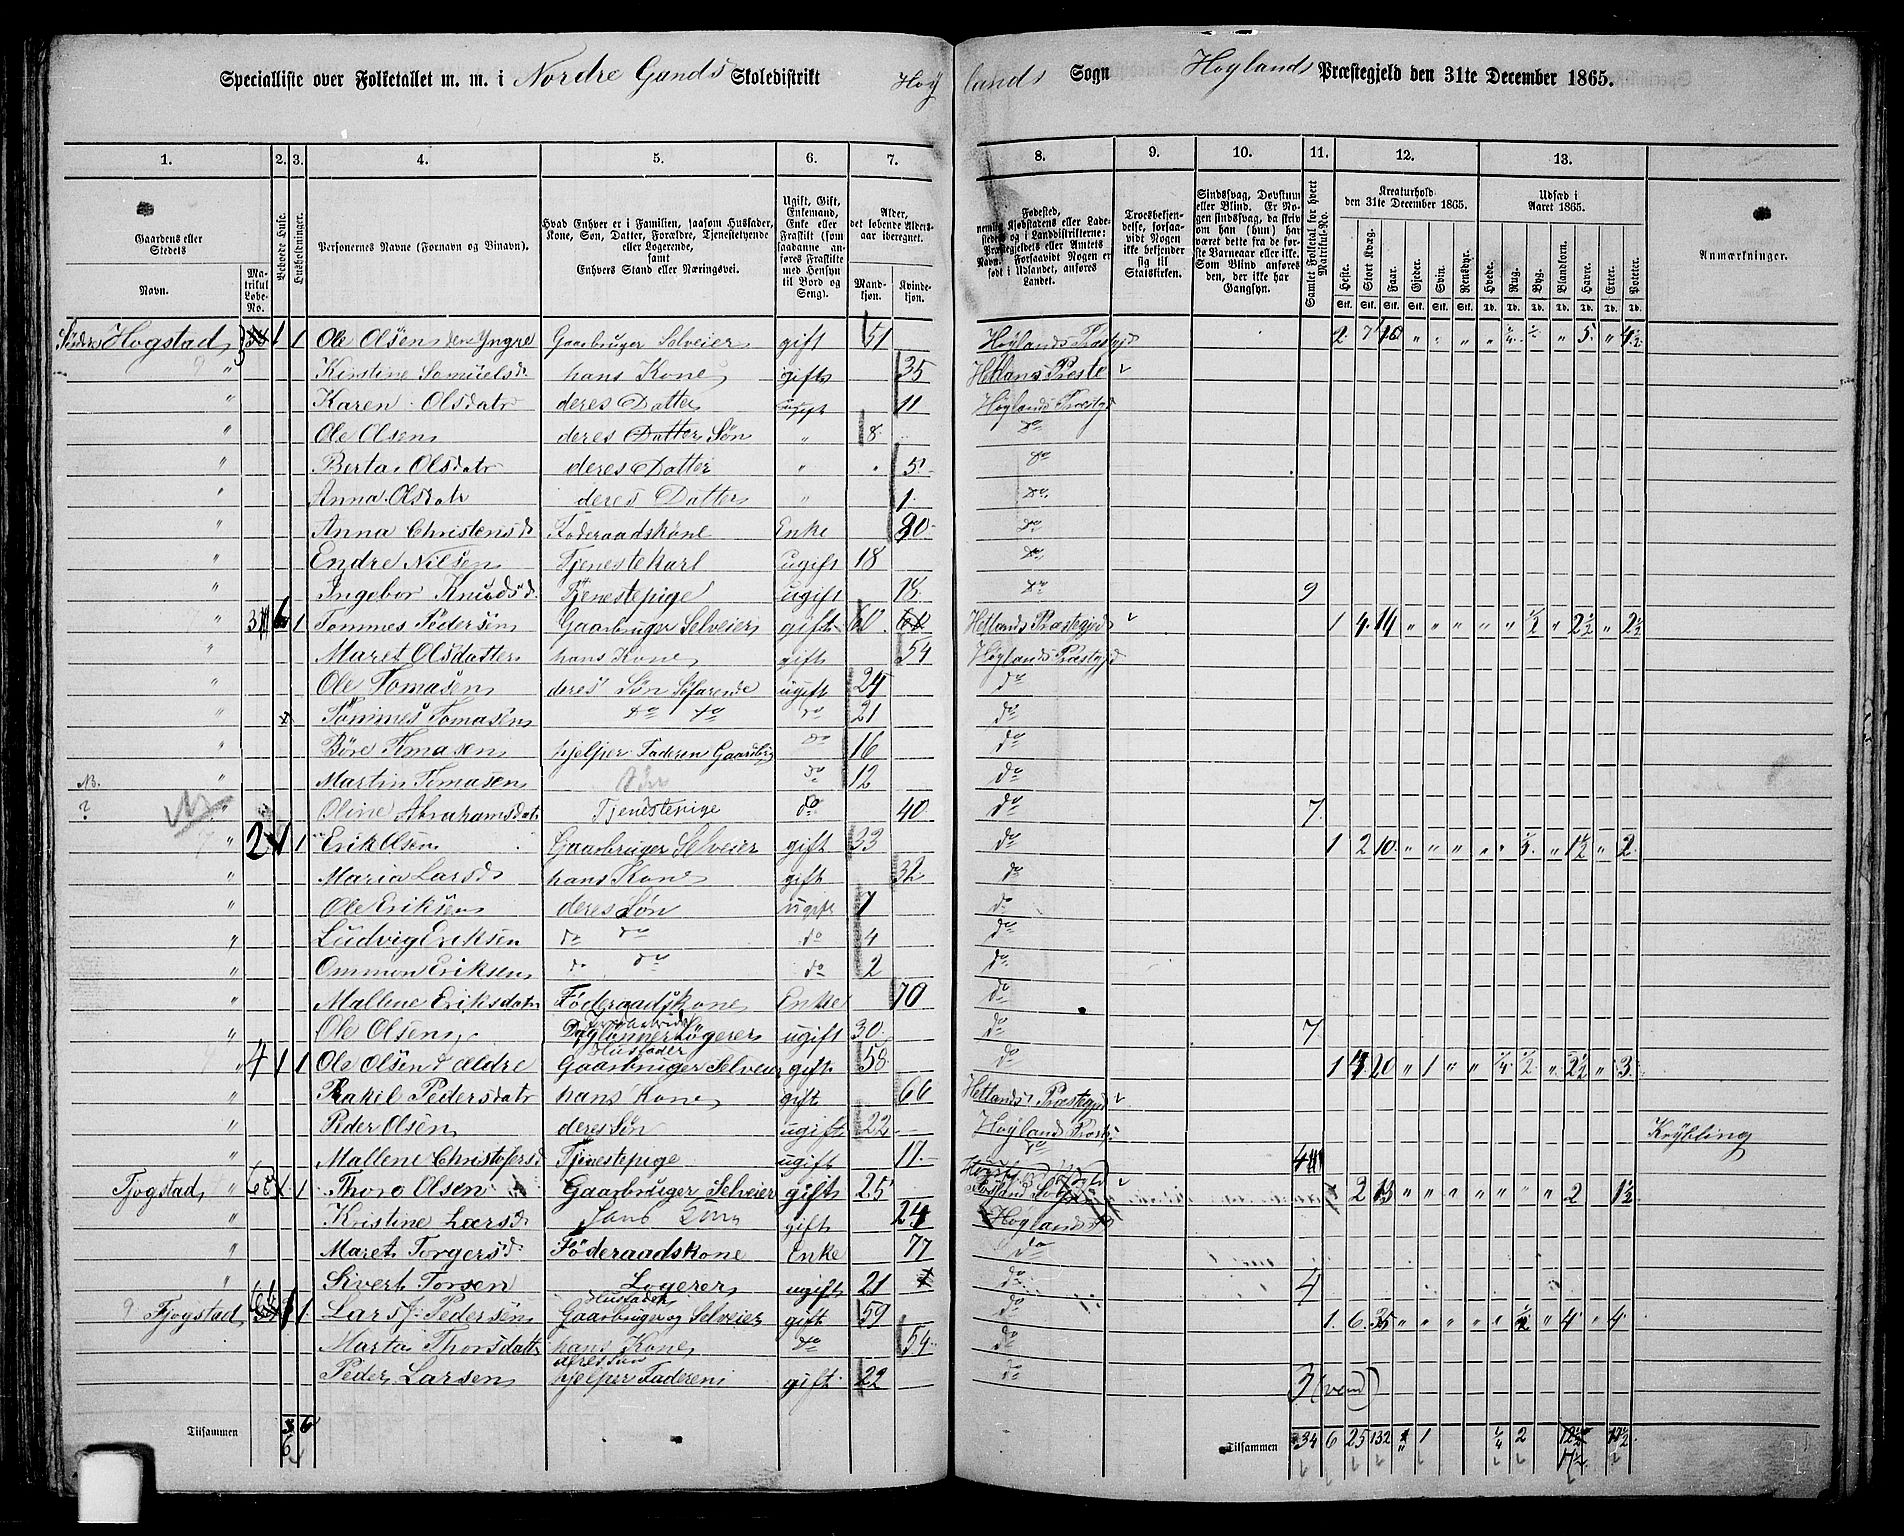 Specialliste over Folketallet m. m. i Nordre Gands Skoledistrikt Høylands Sogn Høylands Præstegjeld den 31te December 1865.
1. 2. 3. 4. 5. 6. 7. 8. 9. 10. 11. 12. 13.
Gaardens eller Stedets Navn. Matrikul Løbe-No. Beboede Huse. Husholdninger. Personernes Navne (Fornavn og Tilnavn). Hvad Enhver er i Familien, saasom Husfader, Kone, Søn, Datter, Forældre, Tjenestetyende eller Logerende, samt Enhvers Stand eller Næringsvei. Alder, det løbende Aldersaar iberegnet. Mandkjøn. Kvindekjøn.
Troesbekjendelse, forsaavidt Nogen ikke bekjender sig til Statskirken. Samlet Folketal for hvert Matrikul-No. Kreaturhold den 31te December 1865. Udsæd i Aaret 1865. Anmærkninger.
Heste. Stort Kvæg. Faar. Gjeder. Svin. Rensdyr. Hvede. Rug. Byg. Blandkorn. Havre. Erter. Poteter.
Hogstad 1 1 Ole Olsen den Yngre Gaarbruger Selveier gift 51 Høylands Præstgjd 2 7 " " " " " 5 " 4½
" Kirstine Samuelsd hans Kone gift 35 Hetlans Præste
" Karen Olsdatr deres Datter ugift 11 Høylands Præstgjd
" Ole Olsen deres Datter Søn " 8 do
" Berta Olsdatr deres Datter " 5 do
" Anna Olsdatr deres Datter " 1 do
" Anna Christensd Føderaadskone Enke 80 do
" Endre Nilsen Tjenestekarl ugift 18 do
" Ingebor Knudsd Tjenestepige ugift 18 do 9
" 1 Tommes Pedersen Gaarbruger Selveier gift 60 Hetlands Præstegjed 1 4 14 " " " " " ½ " 2½ " 2½
" Maret Olsdatter hans Kone gift 54 Høylands Præstgjd
" Ole Tomasen deres Søn Søfarende ugift 24 do
" Tommes Tomasen do do do 21 do
" Børe Tomasen hjelper Faderen Gaardsbrug do 16 do
NB. " Martin Tomasen Søn do 12 do
? " Oline Abrahamsdatr Tjenestepige do 40 do 7
" 2 1 1 Erik Olsen Gaarbruger Selveier gift 33 do 1 2 10 " " " " " " 1½ " 2
" Maria Larsd hans Kone gift 32 do
" Ole Eriksen deres Søn ugift 7 do
" Ludvig Eriksen do do do 4 do
" Ommun Eriksen do do do 2 do
" Mallene Eriksdatr Føderaadskone Enke 70 do
" Ole Olsen Daglønner Logerer ugift 30 do 7
" 4 1 1 Ole Olsen d ældre Husfader Gaarbruger Selveier gift 58 do 1 20 " 1 " " ¼ ½ " 2½ " 3
Rakel Pedersdatr hans Kone gift 66 Hetlands Præstegjd
" Peder Olsen deres Søn ugift 22 Høyland Præst Krøbling
" Mallene Christofersd Tjenestepige ugift 17 do 4
Fjogstad " 1 1 Thore Olsen Gaarbruger Selveier gift 25 2 13 " " " " " " " 2 1½
" Kristine Larsd hans Kone gift 24 Høylands
" Maret Torgersd Føderaadskone Enke 77 do
" Sivert Torsen Logerer ugift 21 do 4
Fjogstad 1 1 Lars J. Pedersen Husfader Gaarbruger og Selveier gift 59 do 1 6 35 " " " " " ½ " 4 " 4
Marta Thorsdatt hans Kone do 54 do
Peder Larsen deres Søn hjelper Faderen gift 22 do 3 (vend)
Tilsammen 6 Tilsammen 34 6 25 132 1 ¼ 2